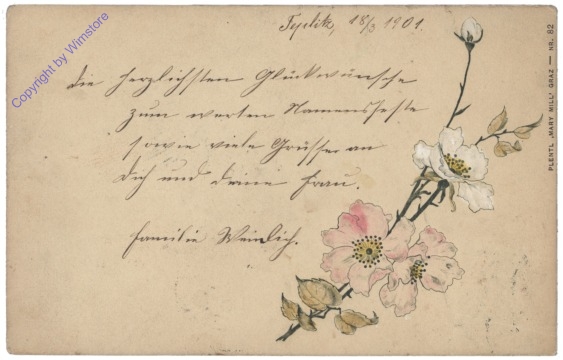 Teplitz, 18/3 1901.
Die herzlichsten Glückwünsche
zum werten Namensfeste
sowie viele Grüsse an
Dich und deine Frau.
Familie Weinlich.
PLENTL „MARY MILL“ GRAZ — NR. 82
Copyright by Wimstore